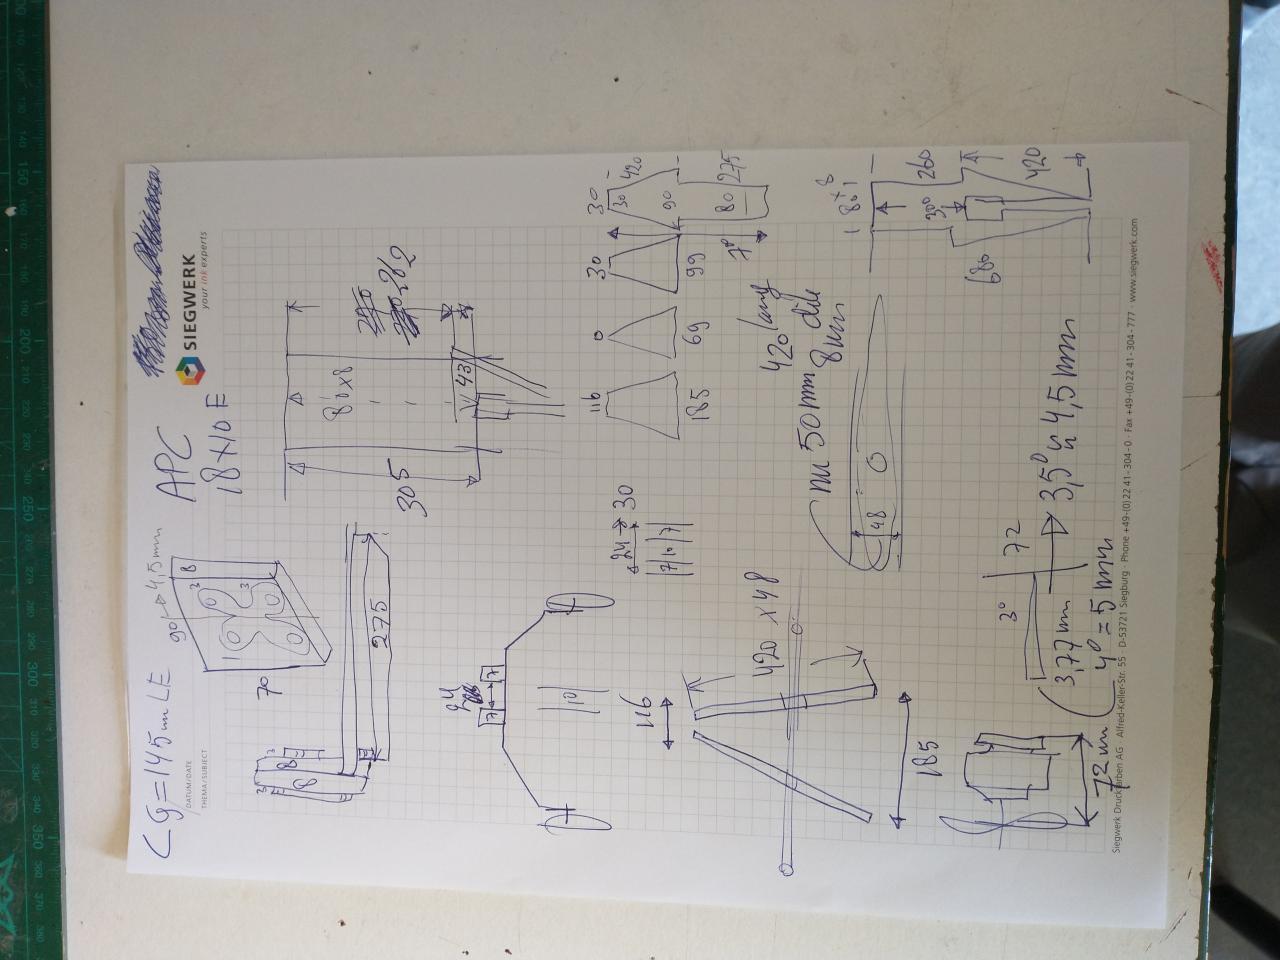 Cg = 145 mm LE
APC
18 x 10 E
SIEGWERK
your ink experts
DATUM/DATE
THEMA/SUBJECT
90/ → 4,5 mm
70
8
3
3
8
8
275
305
80x8
262
43
24
7
7
10
24 → 30
7 10 7
116
185
0
69
30
99
30
30
420
90
80
275
70
116
185
420 x 48
420 lang
50 mm
8 mm
48
80 x 8
300
260
680
420
72 mm
3°
72
3,77 mm
→ 3,5° 4,5 mm
4° = 5 mm
Siegwerk Druckfarben AG · Alfred-Keller-Str. 55 · D-53721 Siegburg · Phone +49-(0)22 41-304-0 · Fax +49-(0)22 41-304-777 · www.siegwerk.com